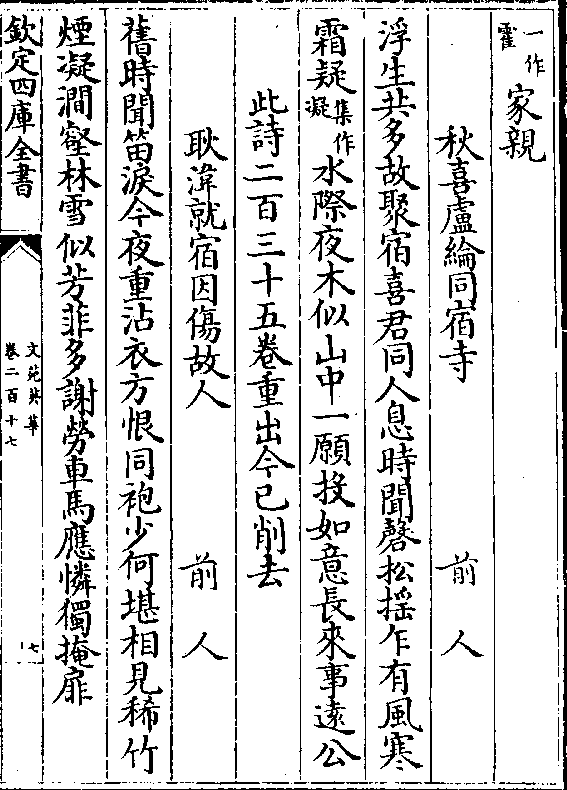 一作霍家親
秋喜盧綸同宿寺　前人
浮生共多故聚宿喜君同人息時聞磬松揺乍有風寒
霜疑集作凝水際夜木似山中一願投如意長來事逺公
此詩二百三十五卷重出今已削去
耿湋就宿因傷故人　前人
舊時聞笛淚今夜重沾衣方恨同袍少何堪相見稀竹
煙凝澗壑林雪似芳菲多謝勞車馬應憐獨掩扉
欽定四庫全書
文苑英華
卷二百十七
七